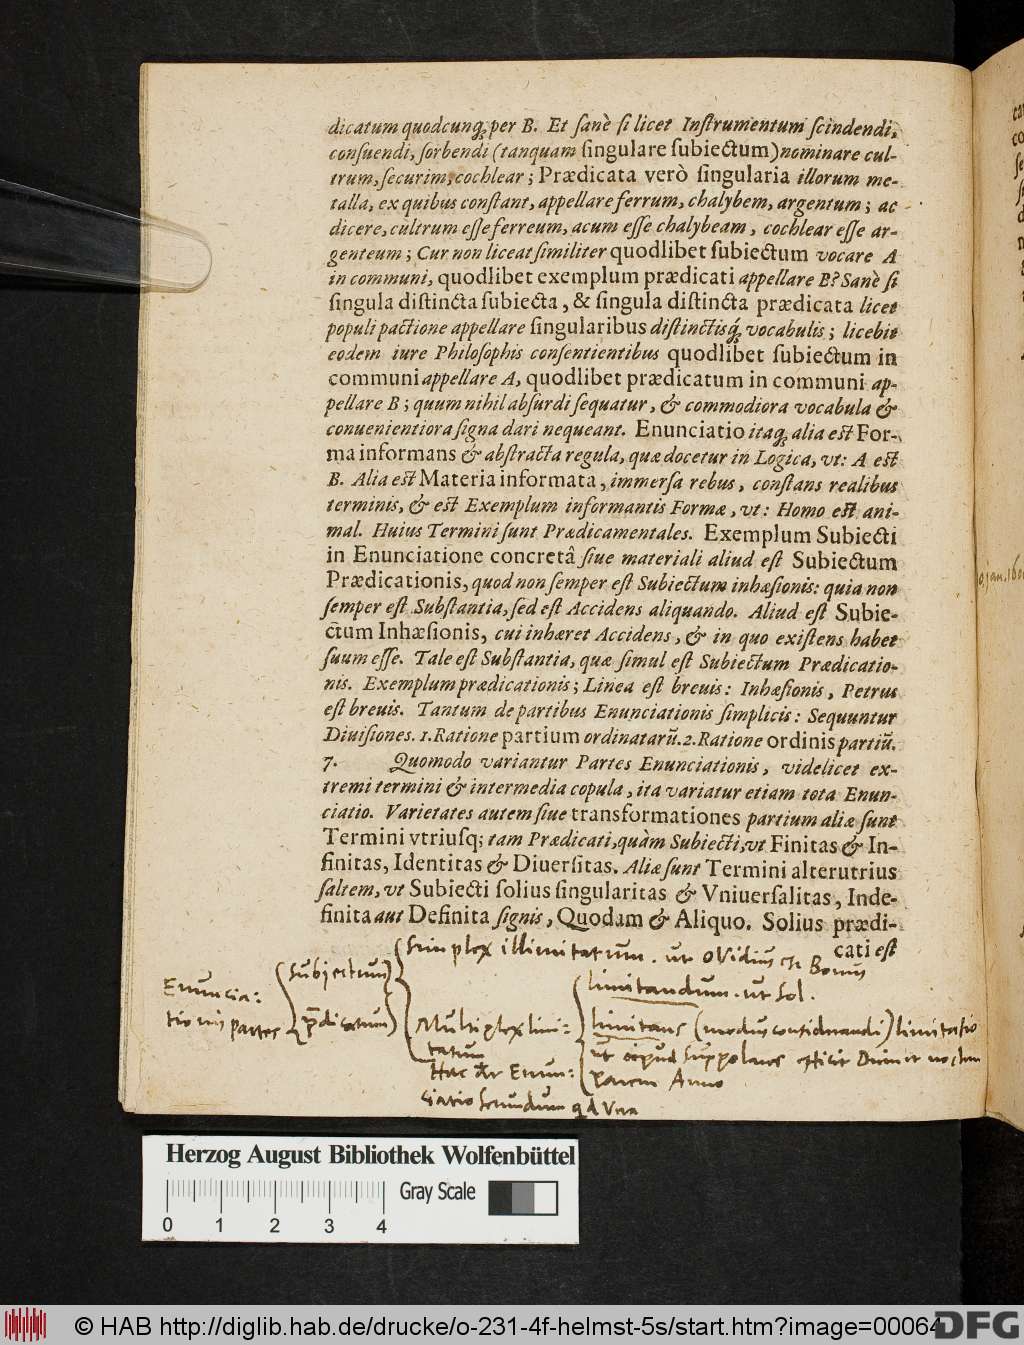 dicatum quodcunq; per B. Et ſanè ſi licet Inſtrumentum ſcindendi,
conſuendi, ſorbendi (tanquam ſingulare ſubiectum) nominare cul-
trum, ſecurim, cochlear; Prædicata verò ſingularia illorum me-
talla, ex quibus conſtant, appellare ferrum, chalybem, argentum; ac
dicere, cultrum eſſe ferreum, acum eſſe chalybeam, cochlear eſſe ar-
genteum; Cur non liceat ſimiliter quodlibet ſubiectum vocare A
in communi, quodlibet exemplum prædicati appellare B? Sanè ſi
ſingula diſtincta ſubiecta, & ſingula diſtincta prædicata licet
populi pactione appellare ſingularibus diſtinctisq́; vocabulis; licebit
eodem iure Philoſophis conſentientibus quodlibet ſubiectum in
communi appellare A, quodlibet prædicatum in communi ap-
pellare B; quum nihil abſurdi ſequatur, & commodiora vocabula &
conuenientiora ſigna dari nequeant. Enunciatio itaq; alia eſt For-
ma informans & abſtracta regula, quæ docetur in Logica, vt: A eſt
B. Alia eſt Materia informata, immerſa rebus, conſtans realibus
terminis, & eſt Exemplum informantis Formæ, vt: Homo eſt ani-
mal. Huius Termini ſunt Prædicamentales. Exemplum Subiecti
in Enunciatione concretâ ſiue materiali aliud eſt Subiectum
Prædicationis, quod non ſemper eſt Subiectum inhæſionis: quia non
ſemper eſt Subſtantia, ſed eſt Accidens aliquando. Aliud eſt Subie-
ctum Inhæſionis, cui inhæret Accidens, & in quo exiſtens habet
ſuum eſſe. Tale eſt Subſtantia, quæ ſimul eſt Subiectum Prædicatio-
nis. Exemplum prædicationis; Linea eſt breuis: Inhæſionis, Petrus
eſt breuis. Tantum de partibus Enunciationis ſimplicis: Sequuntur
Diuiſiones. 1. Ratione partium ordinatarū. 2. Ratione ordinis partiū.
7. Quomodo variantur Partes Enunciationis, videlicet ex-
tremi termini & intermedia copula, ita variatur etiam tota Enun-
ciatio. Varietates autem ſiue transformationes partium aliæ ſunt
Termini vtriuſq; tam Prædicati, quàm Subiecti, vt Finitas & In-
finitas, Identitas & Diuerſitas. Aliæ ſunt Termini alterutrius
ſaltem, vt Subiecti ſolius ſingularitas & Vniuerſalitas, Inde-
finita aut Definita ſignis, Quodam & Aliquo. Solius prædi-
cati eſt
Simplex illimitatum. ut Ovidius est Bonus
Enuncia:
tionis partes
Subjectum
p̄dicatum
Multiplex limi:
tatum
Hac Enun:
ciatio secundum
limitandum. ut Sol.
limitans (modus considerandi) limitatio
ut
Anno
jan. 160
Herzog August Bibliothek Wolfenbüttel
Gray Scale
0 1 2 3 4
© HAB http://diglib.hab.de/drucke/o-231-4f-helmst-5s/start.htm?image=00064
DFG